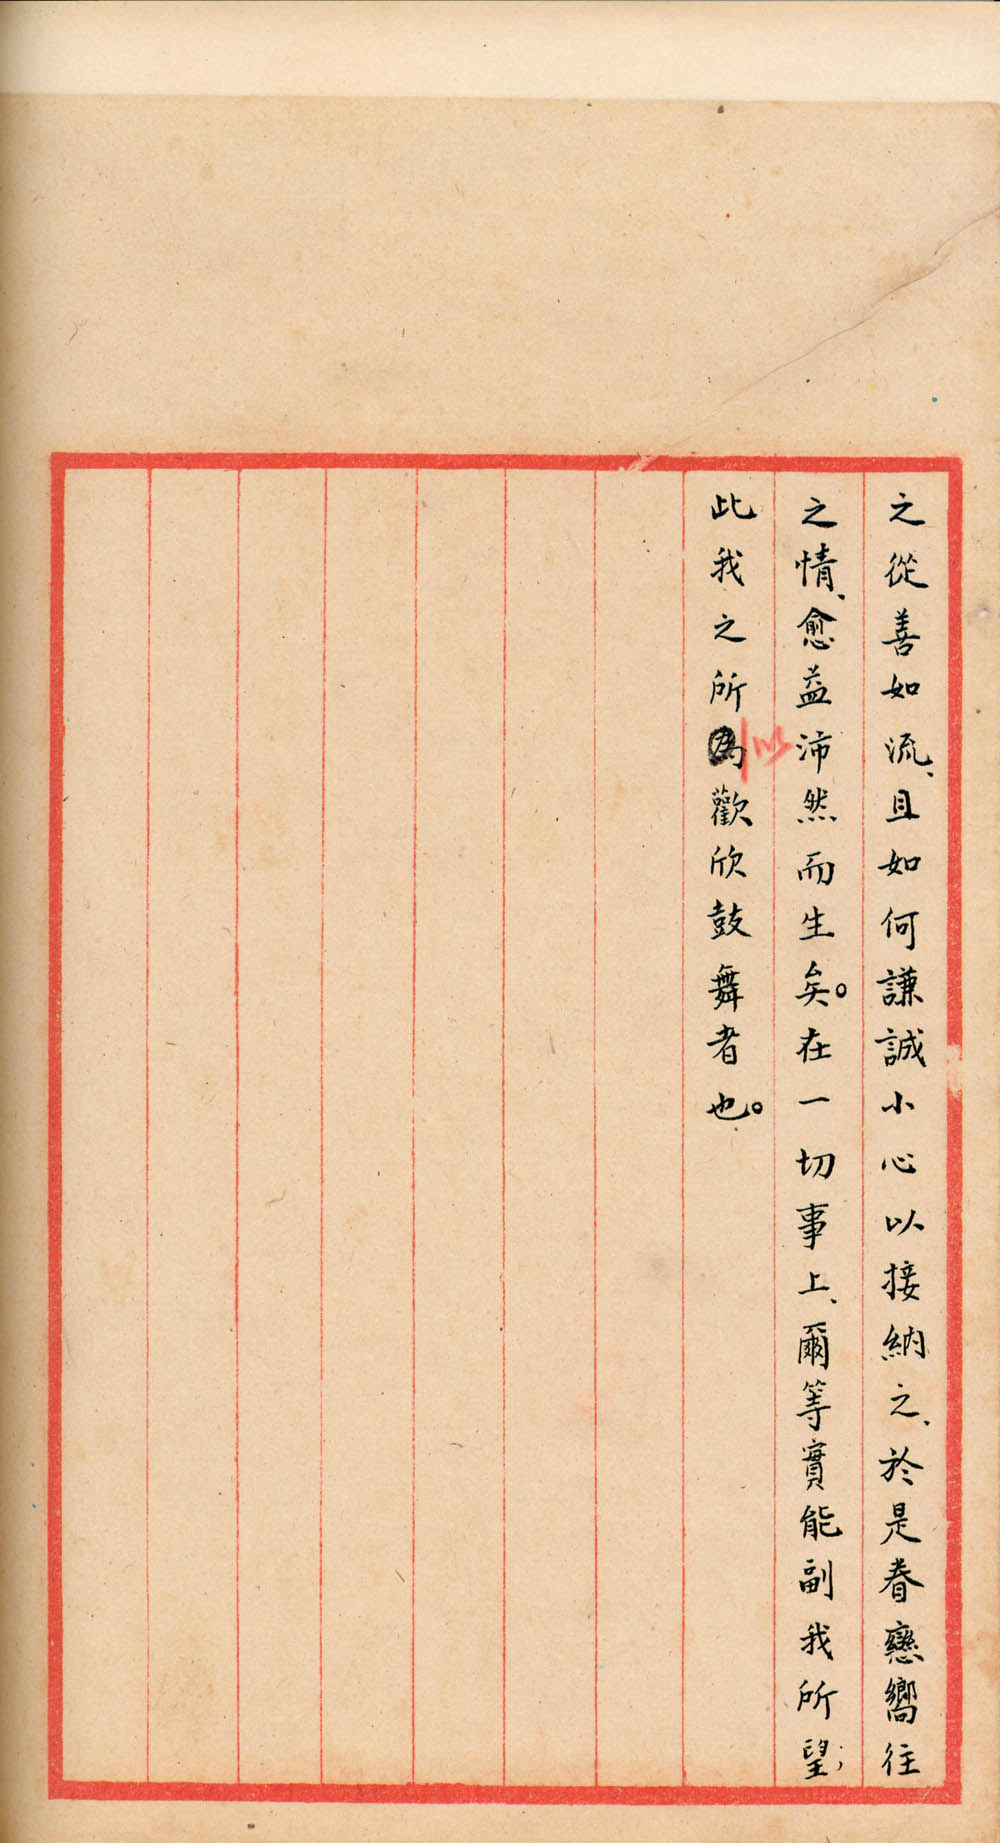 之從善如流、且如何謙誠小心以接納之、於是眷戀嚮往
之情、愈益沛然而生矣。在一切事上、爾等實能副我所望；
此我之所為歡欣鼓舞者也。
以